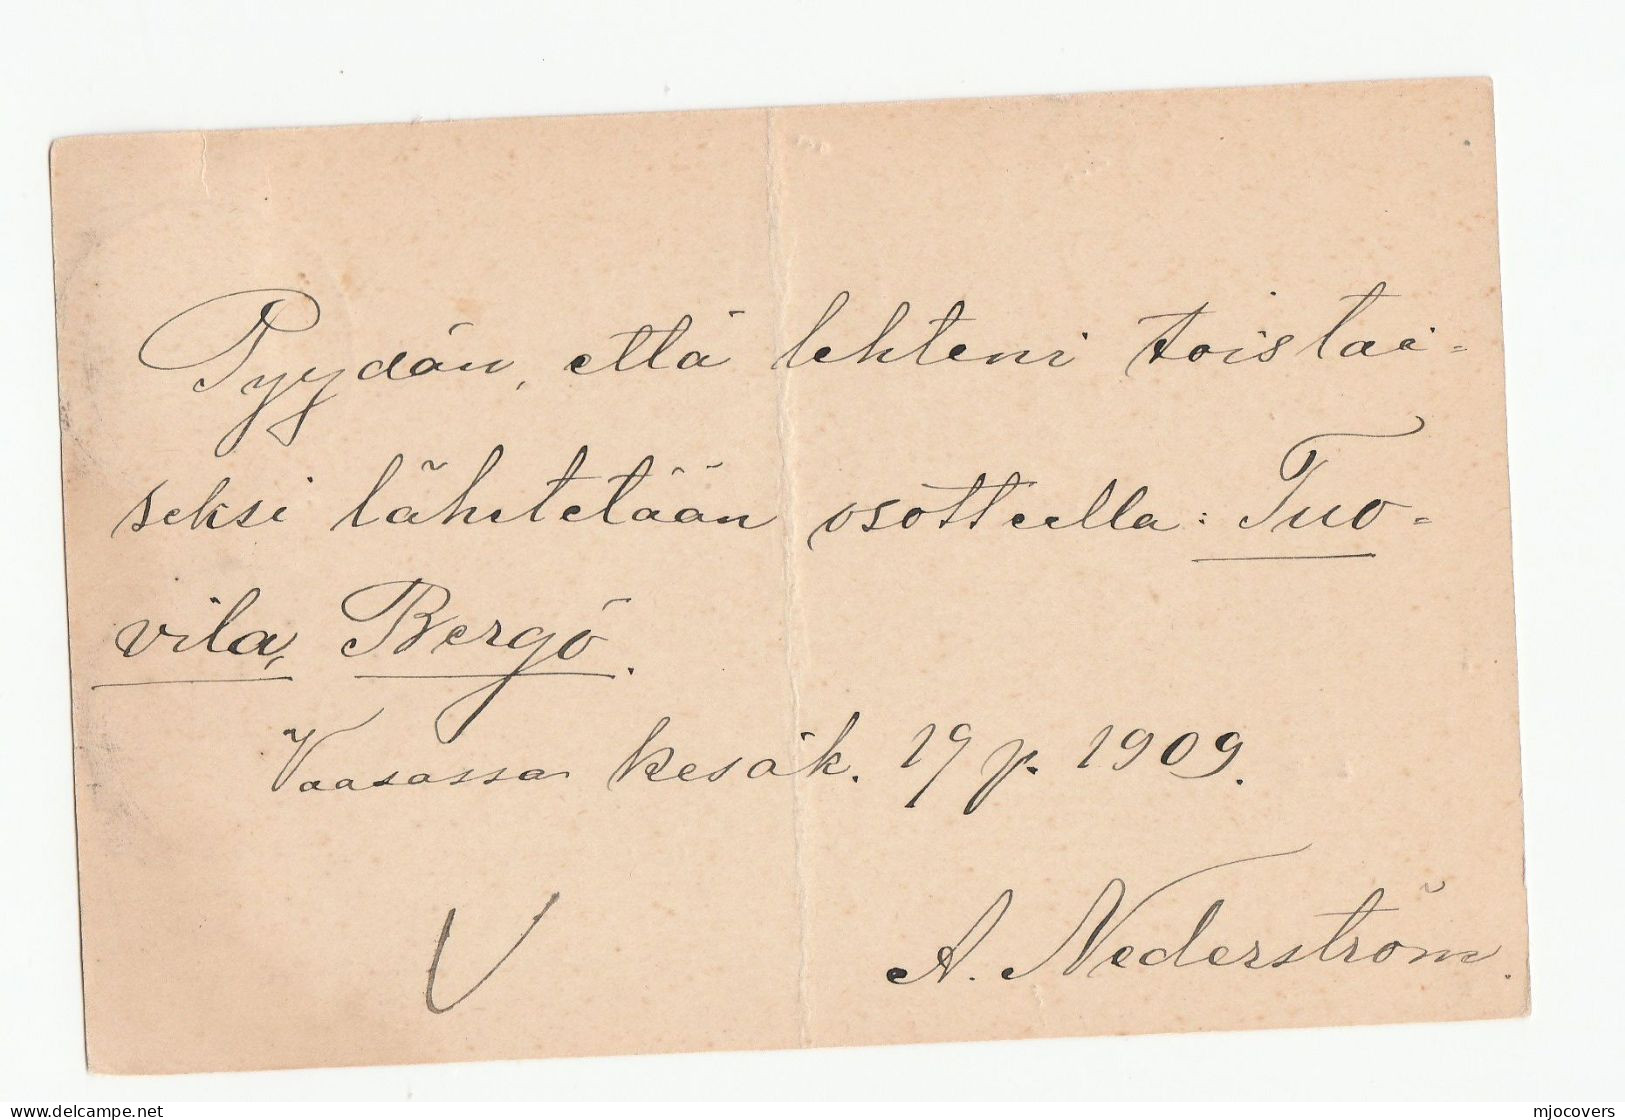 Pyydän, että lehteni toistai=
seksi lähetetään osotteella: Tuo=
vila, Bergö.
Vaasassa kesäk. 19 p. 1909.
V
A. Nederström.
delcampe.net
mjocovers